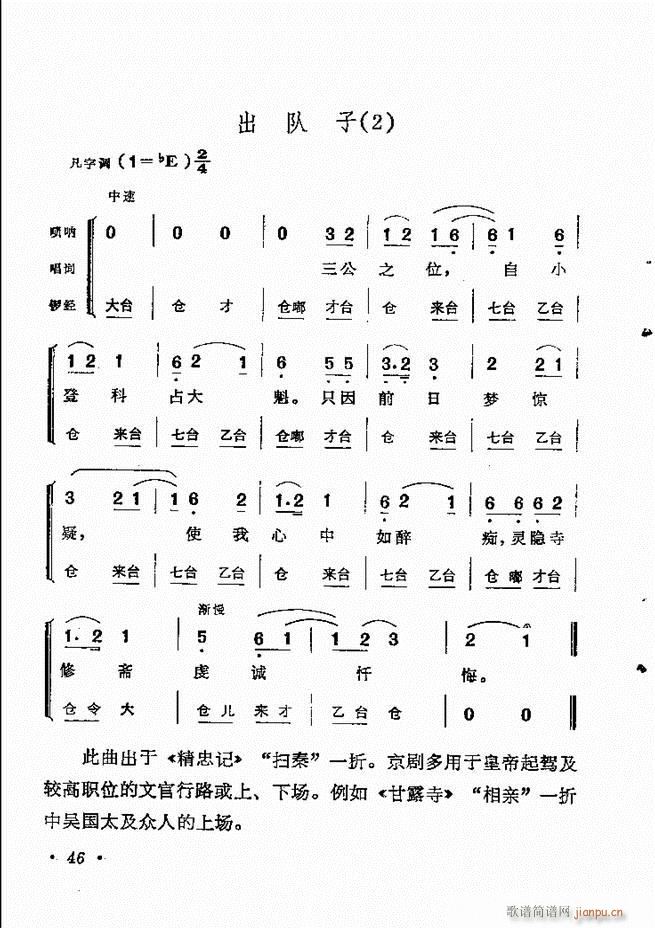 出 队 子(2)
凡字调 (1=♭E) 2/4
中速
唢呐 0 | 0 0 | 0 3 2 | 1 2 1 6 | 6 1 6
唱词 三公 之 位， 自 小
锣经 大台 | 仓 才 | 仓嘟 才台 | 仓 来台 | 七台 乙台
1 2 1 | 6 2 1 | 6 5 5 | 3·2 3 | 2 2 1
登 科 占大 魁。 只因 前 日 梦 惊
仓 来台 | 七台 乙台 | 仓嘟 才台 | 仓 来台 | 七台 乙台
3 2 1 | 1 6 2 | 1·2 1 | 6 2 1 | 6 6 6 2
疑， 使 我 心 中 如醉 痴，灵隐寺
仓 来台 | 七台 乙台 | 仓 来台 | 七台 乙台 | 仓 嘟 才台
渐慢
1· 2 1 | 5 6 1 | 1 2 3 | 2 1
修 斋 虔 诚 忏 悔。
仓 令 大 | 仓 儿 来 才 | 乙台 仓 | 0 0
此曲出于《精忠记》“扫秦”一折。京剧多用于皇帝起驾及
较高职位的文官行路或上、下场。例如《甘露寺》“相亲”一折
中吴国太及众人的上场。
· 46 ·
歌谱简谱网 jianpu.cn